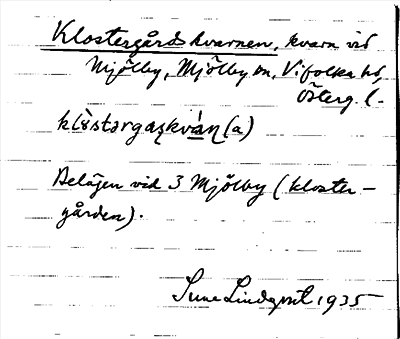 Klostergårdskvarnen, kvarn vid
Mjölby, Mjölby sn, Vifolka hd,
Österg. l.
Belägen vid 3 Mjölby (Kloster-
gården).
Sune Lindqvist 1935